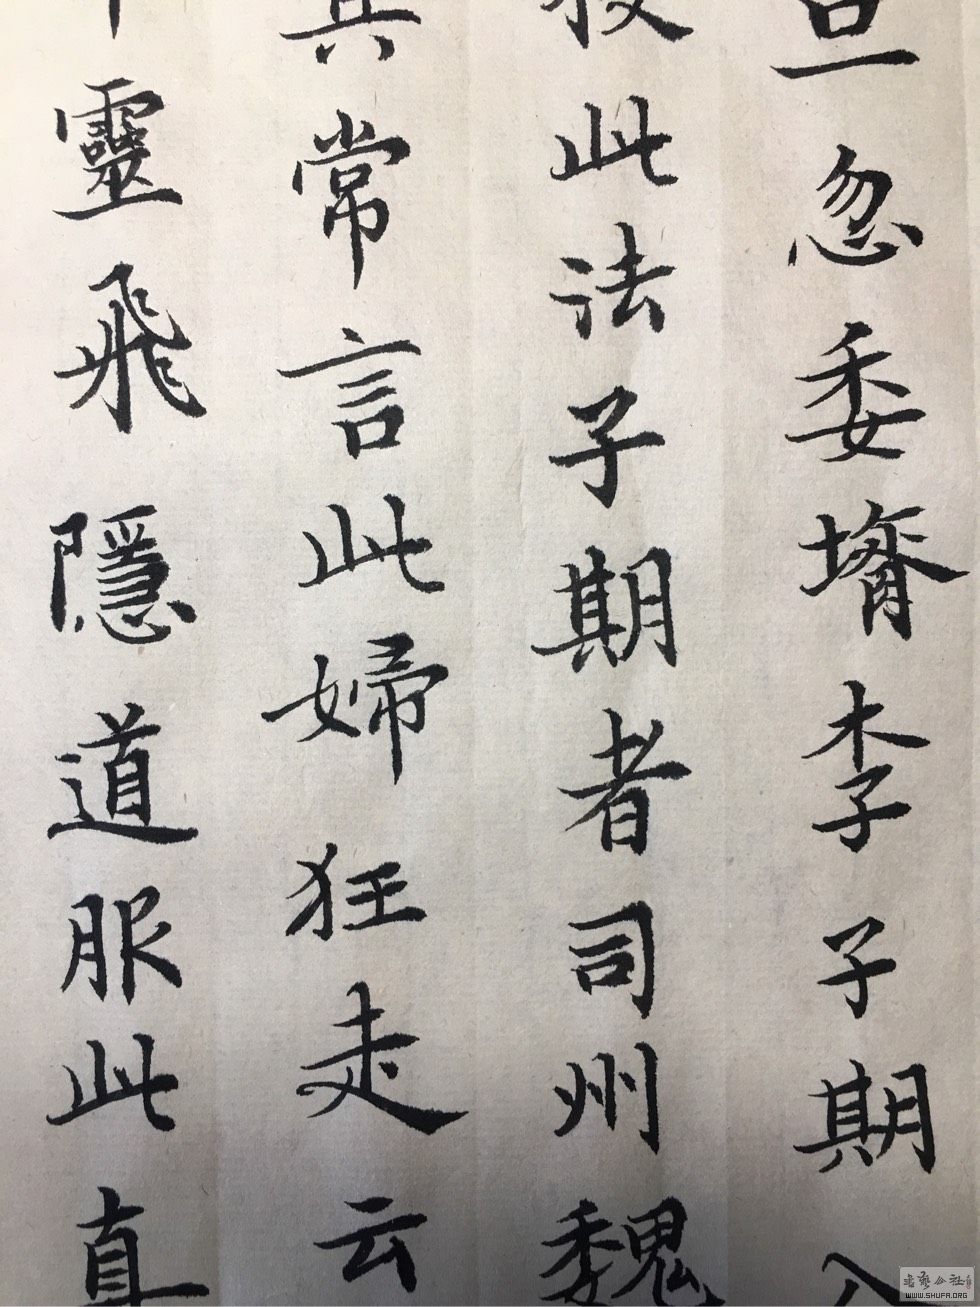 旦忽委壻李子期入
此法子期者司州魏
其常言此婦狂走云
靈飛隱道服此真
書藝公社
WWW.SHUFA.ORG